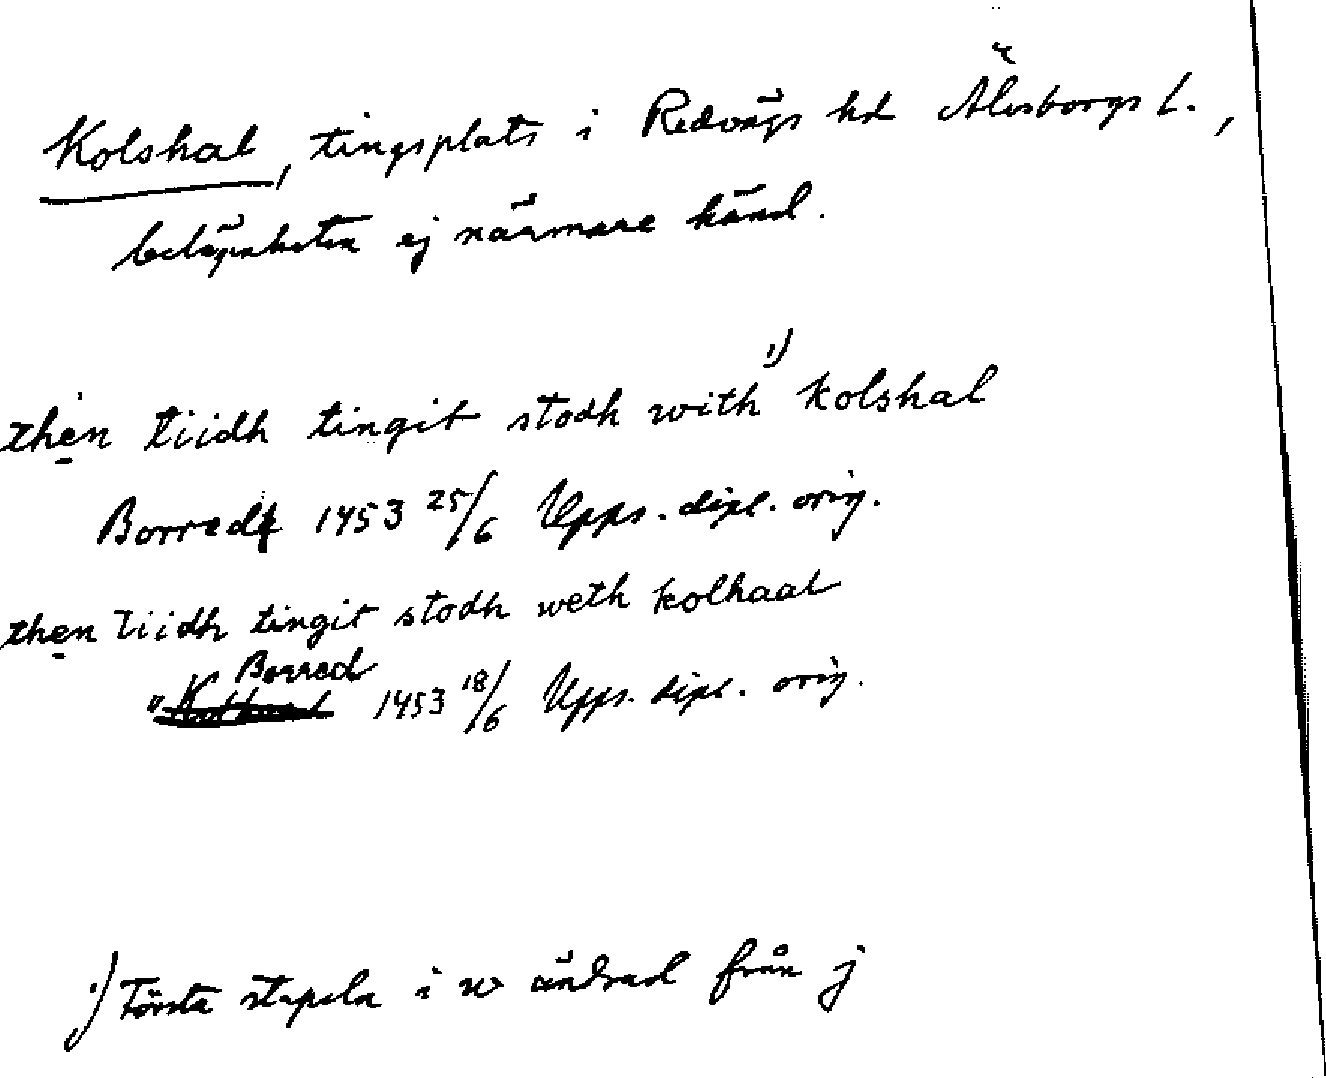 Kolshal, tingsplats i Redvägs hd Älvsborgs l.,
belägenheten ej närmare känd.
then tiidh tingit stodh with 1) kolshal
Borred 1453 25/6 Upps. dipl. orig.
then tiidh tingit stodh weth kolhaal
Borred
" 1453 18/6 Upps. dipl. orig.
1) Första stapeln i w ändrad från j